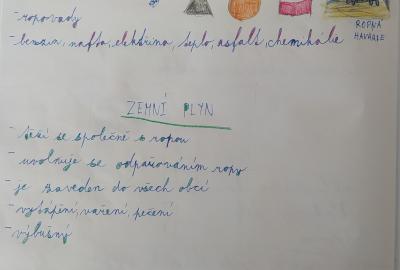 - ropovody
- benzín, nafta, elektřina, teplo, asfalt, chemikálie
ROPNÁ
HAVÁRIE
ZEMNÍ PLYN
- těží se společně s ropou
- uvolňuje se odpařováním ropy
- je zaveden do všech obcí
- vytápění, vaření, pečení
- výbušný